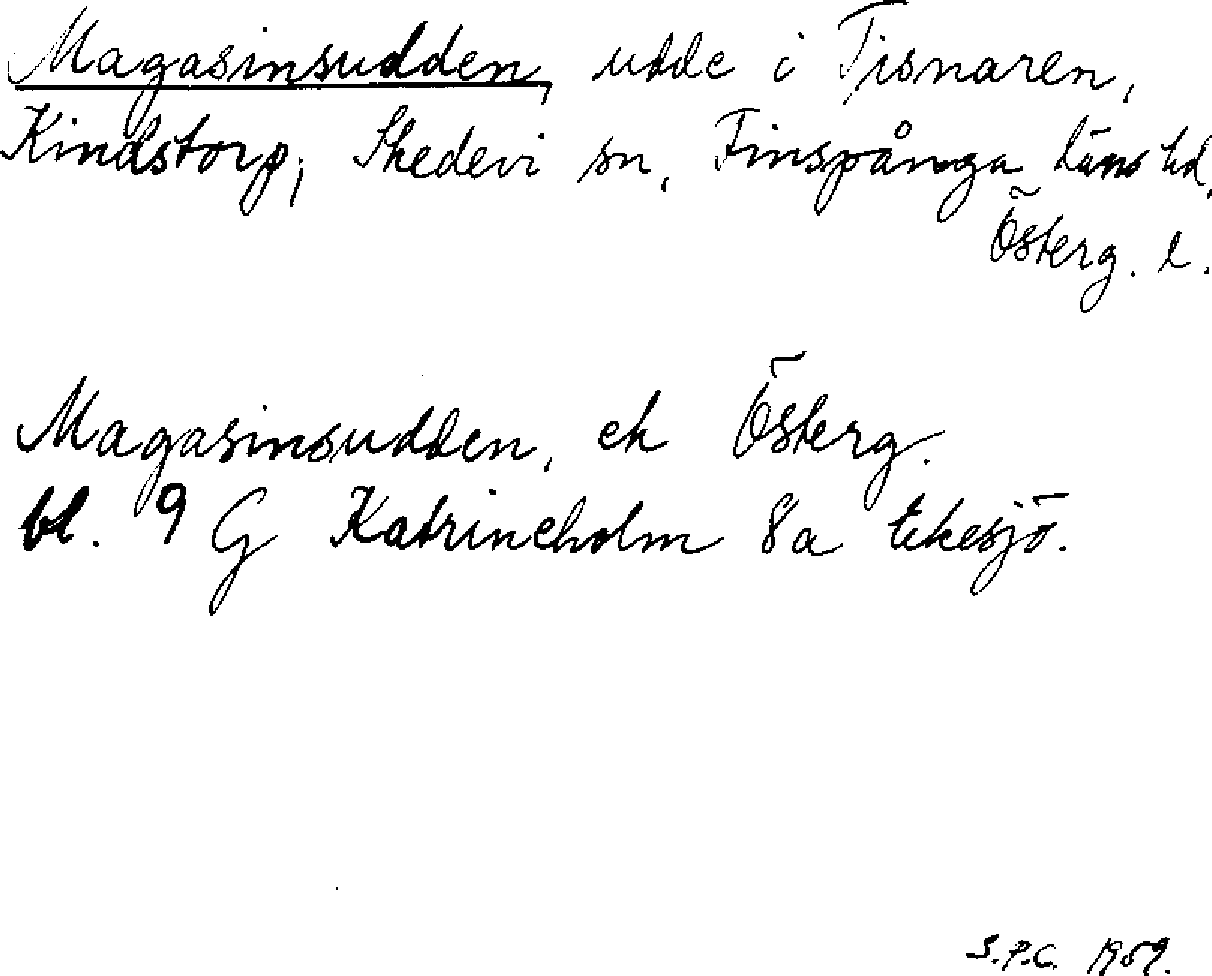 Magasinsudden, udde i Tisnaren,
Kindstorp, Skedevi sn, Finspånga läns hd.
Österg. l.
Magasinsudden, ek Österg.
bl. 9 G Katrineholm 8a
S.P.C. 1959.